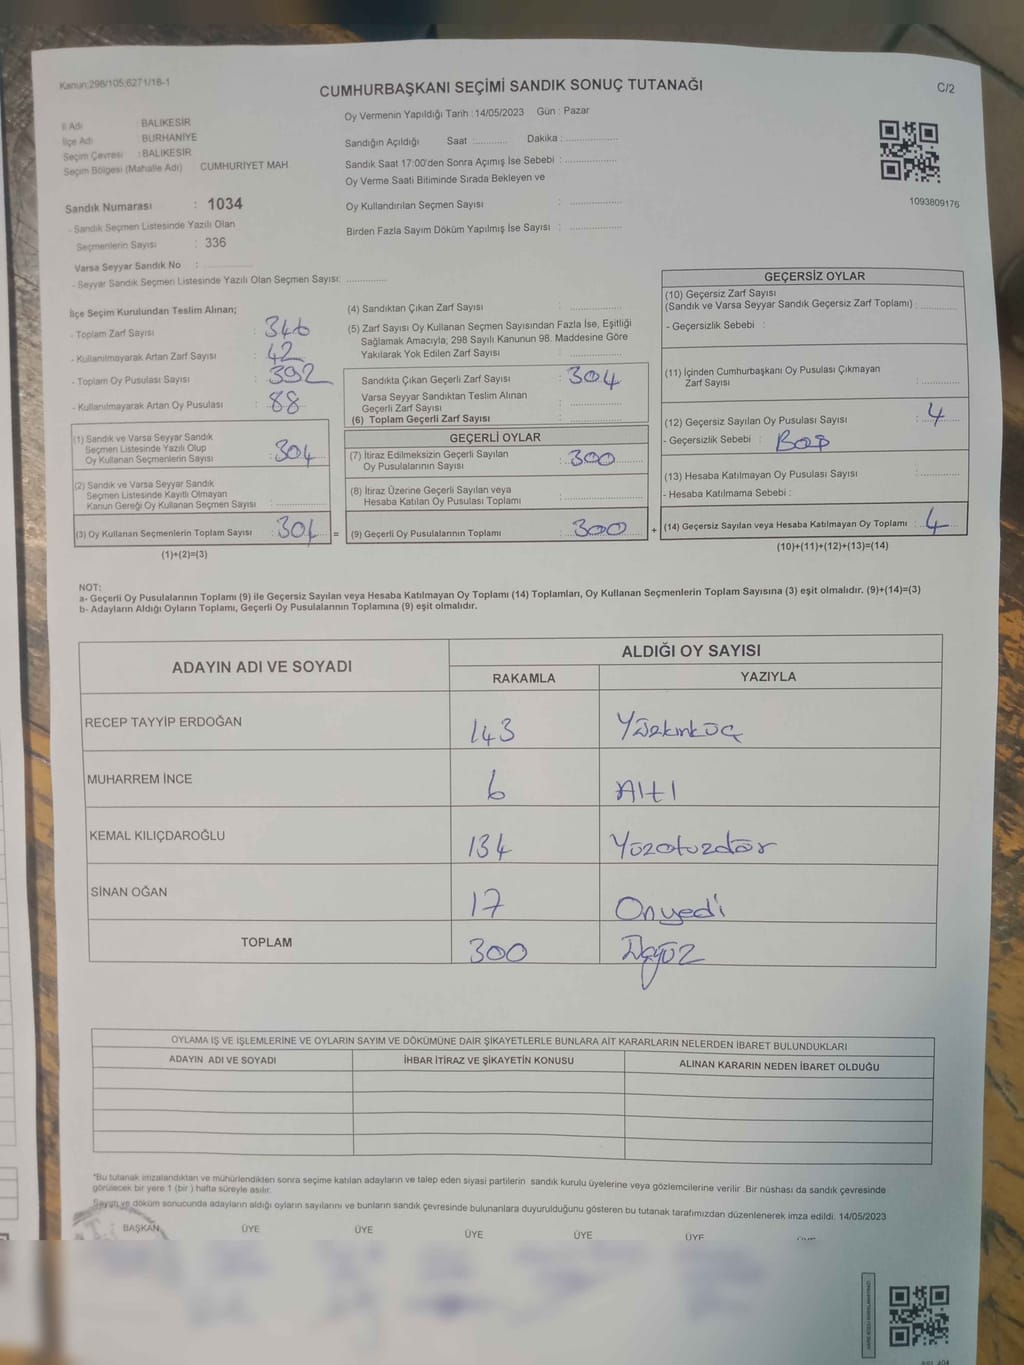 Kanun:298/105;6271/18-1
CUMHURBAŞKANI SEÇİMİ SANDIK SONUÇ TUTANAĞI
C/2
Oy Vermenin Yapıldığı Tarih : 14/05/2023 Gün : Pazar
İl Adı BALIKESİR
İlçe Adı BURHANİYE
Seçim Çevresi : BALIKESİR
Seçim Bölgesi (Mahalle Adı) CUMHURİYET MAH.
Sandığın Açıldığı Saat : ............ Dakika : ................
Sandık Saat 17:00'den Sonra Açımış İse Sebebi : ................
Oy Verme Saati Bitiminde Sırada Bekleyen ve
Oy Kullandırılan Seçmen Sayısı : ................
Birden Fazla Sayım Döküm Yapılmış İse Sayısı : ................
1093809176
Sandık Numarası : 1034
- Sandık Seçmen Listesinde Yazılı Olan
Seçmenlerin Sayısı : 336
Varsa Seyyar Sandık No : ................
- Seyyar Sandık Seçmen Listesinde Yazılı Olan Seçmen Sayısı: ............
İlçe Seçim Kurulundan Teslim Alınan;
- Toplam Zarf Sayısı : 346
- Kullanılmayarak Artan Zarf Sayısı : 42
- Toplam Oy Pusulası Sayısı : 392
- Kullanılmayarak Artan Oy Pusulası : 88
(1) Sandık ve Varsa Seyyar Sandık
Seçmen Listesinde Yazılı Olup
Oy Kullanan Seçmenlerin Sayısı : 304
(2) Sandık ve Varsa Seyyar Sandık
Seçmen Listesinde Kayıtlı Olmayan
Kanun Gereği Oy Kullanan Seçmen Sayısı : ................
(3) Oy Kullanan Seçmenlerin Toplam Sayısı : 304
(1)+(2)=(3)
(4) Sandıktan Çıkan Zarf Sayısı : ................
(5) Zarf Sayısı Oy Kullanan Seçmen Sayısından Fazla İse, Eşitliği
Sağlamak Amacıyla; 298 Sayılı Kanunun 98. Maddesine Göre
Yakılarak Yok Edilen Zarf Sayısı : ................
Sandıkta Çıkan Geçerli Zarf Sayısı : 304
Varsa Seyyar Sandıktan Teslim Alınan
Geçerli Zarf Sayısı : ................
(6) Toplam Geçerli Zarf Sayısı : ................
GEÇERLİ OYLAR
(7) İtiraz Edilmeksizin Geçerli Sayılan
Oy Pusulalarının Sayısı : 300
(8) İtiraz Üzerine Geçerli Sayılan veya
Hesaba Katılan Oy Pusulası Toplamı : ................
= (9) Geçerli Oy Pusulalarının Toplamı : 300 +
GEÇERSİZ OYLAR
(10) Geçersiz Zarf Sayısı
(Sandık ve Varsa Seyyar Sandık Geçersiz Zarf Toplamı) : ............
- Geçersizlik Sebebi :
(11) İçinden Cumhurbaşkanı Oy Pusulası Çıkmayan
Zarf Sayısı : ............
(12) Geçersiz Sayılan Oy Pusulası Sayısı : 4
- Geçersizlik Sebebi : Boş
(13) Hesaba Katılmayan Oy Pusulası Sayısı : ............
- Hesaba Katılmama Sebebi :
(14) Geçersiz Sayılan veya Hesaba Katılmayan Oy Toplamı : 4
(10)+(11)+(12)+(13)=(14)
NOT:
a- Geçerli Oy Pusulalarının Toplamı (9) ile Geçersiz Sayılan veya Hesaba Katılmayan Oy Toplamı (14) Toplamları, Oy Kullanan Seçmenlerin Toplam Sayısına (3) eşit olmalıdır. (9)+(14)=(3)
b- Adayların Aldığı Oyların Toplamı, Geçerli Oy Pusulalarının Toplamına (9) eşit olmalıdır.
ADAYIN ADI VE SOYADI
ALDIĞI OY SAYISI
RAKAMLA YAZIYLA
RECEP TAYYİP ERDOĞAN 143 Yüzkırküç
MUHARREM İNCE 6 Altı
KEMAL KILIÇDAROĞLU 134 Yüzotuzdör
SİNAN OĞAN 17 Onyedi
TOPLAM 300 Üçyüz
OYLAMA İŞ VE İŞLEMLERİNE VE OYLARIN SAYIM VE DÖKÜMÜNE DAİR ŞİKAYETLERLE BUNLARA AİT KARARLARIN NELERDEN İBARET BULUNDUKLARI
ADAYIN ADI VE SOYADI İHBAR İTİRAZ VE ŞİKAYETİN KONUSU ALINAN KARARIN NEDEN İBARET OLDUĞU
*Bu tutanak imzalandıktan ve mühürlendikten sonra seçime katılan adayların ve talep eden siyasi partilerin sandık kurulu üyelerine veya gözlemcilerine verilir .Bir nüshası da sandık çevresinde
görülecek bir yere 1 (bir ) hafta süreyle asılır.
Sayım ve döküm sonucunda adayların aldığı oyların sayılarını ve bunların sandık çevresinde bulunanlara duyurulduğunu gösteren bu tutanak tarafımızdan düzenlenerek imza edildi. 14/05/2023
BAŞKAN ÜYE ÜYE ÜYE ÜYE ÜYE